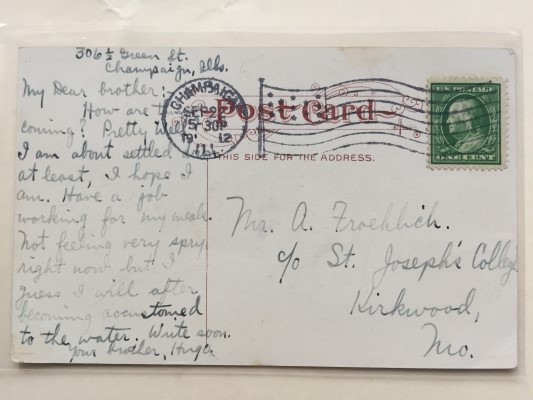 306 ½ Green St.
Champaign, Ills.
My Dear brother:-
How are
coming? Pretty well
I am about settled
at least, I hope I
am. Have a job
working for my meals.
Not feeling very spry
right now but I
guess I will after
becoming accustomed
to the water. Write soon.
Your brother, Hugo
CHAMPAIGN
SEP 29
30P
12
ILL.
Post Card
THIS SIDE FOR THE ADDRESS.
U.S. POSTAGE
ONE CENT
Mr. A. Froehlich.
c/o St. Joseph's College
Kirkwood,
Mo.